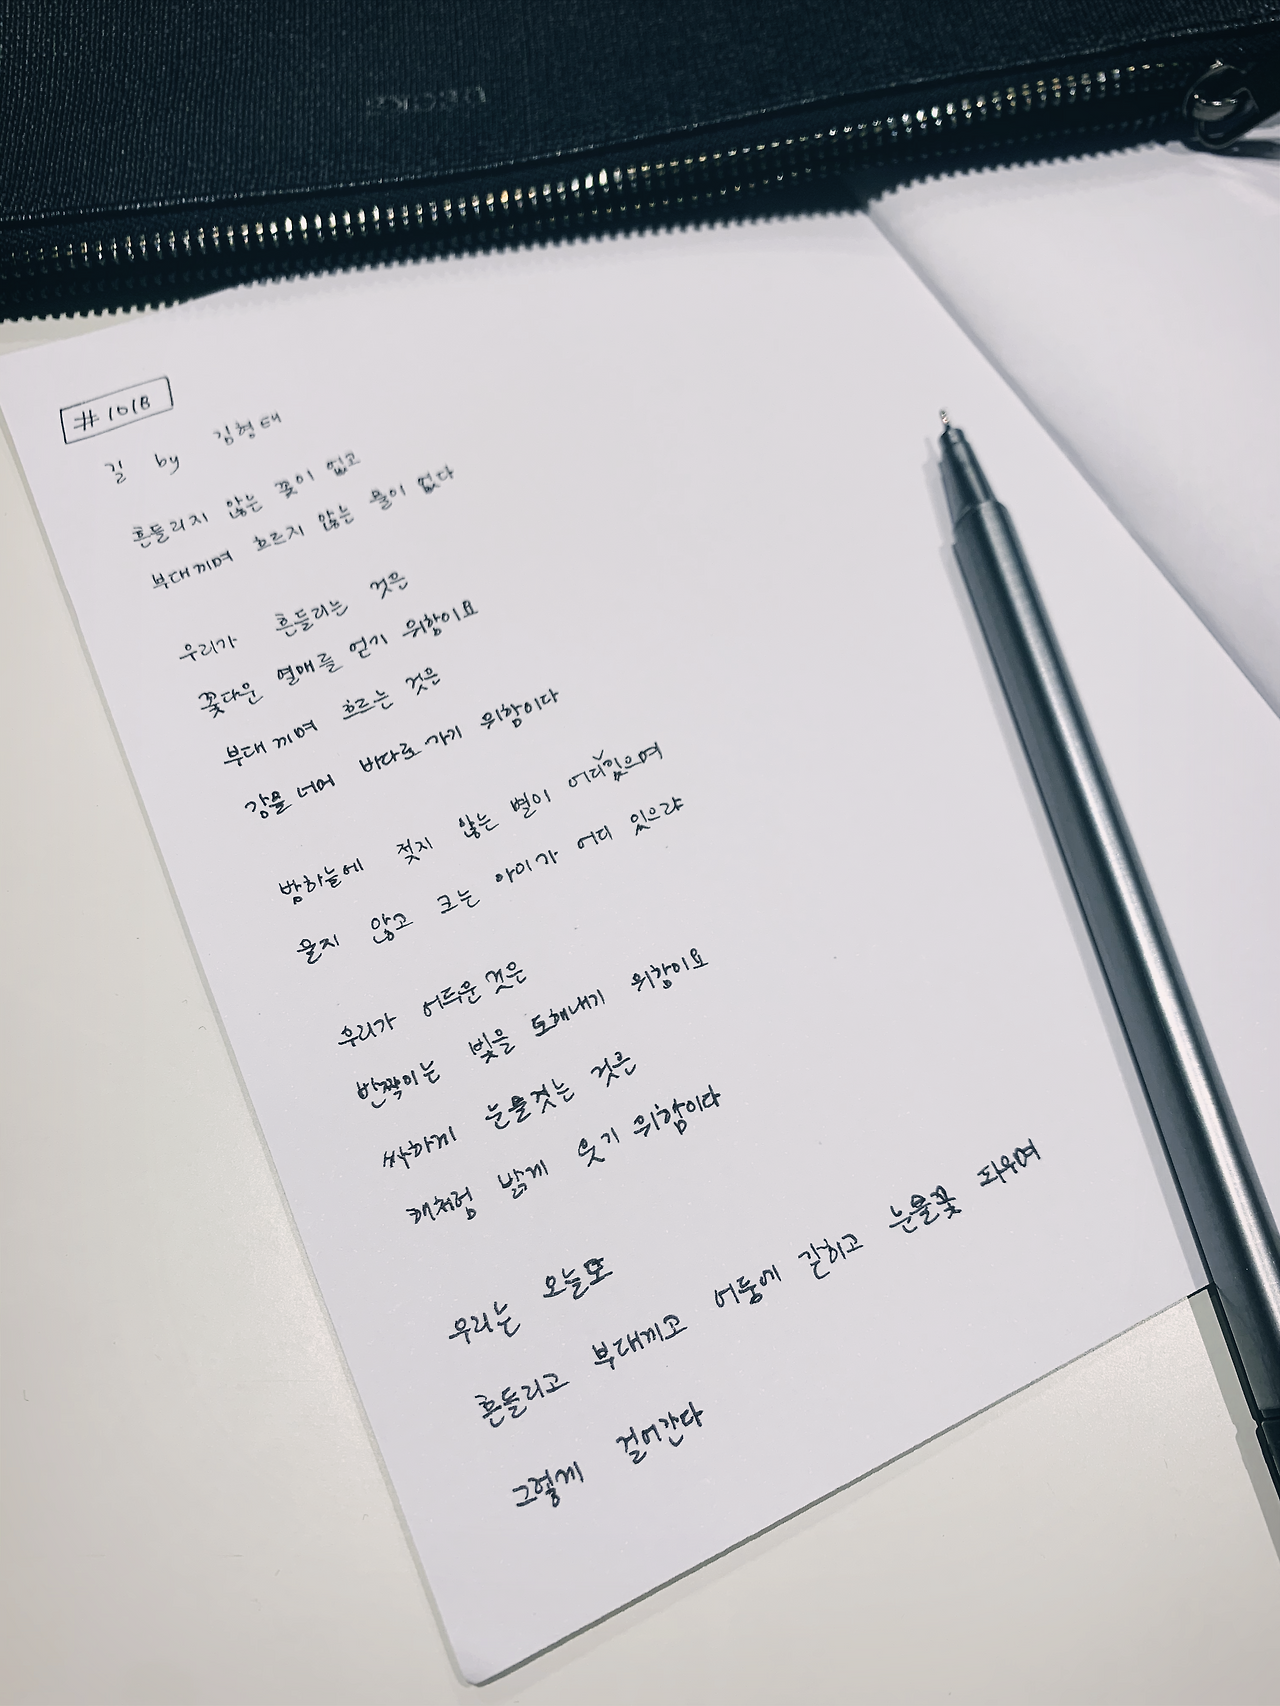 #1018
길 by 김형태
흔들리지 않는 꽃이 없고
부대끼며 흐르지 않는 물이 없다
우리가 흔들리는 것은
꽃다운 열매를 얻기 위함이요
부대끼며 흐르는 것은
강물 너머 바다로 가기 위함이다
밤하늘에 젖지 않는 별이 어디있으며
울지 않고 크는 아이가 어디 있으랴
우리가 어두운 것은
반짝이는 빛을 토해내기 위함이요
싸하게 눈물겻는 것은
해처럼 밝게 웃기 위함이다
우리는 오늘또
흔들리고 부대끼고 어둠에 갇히고 눈물꽃 피우며
그렇게 걸어간다